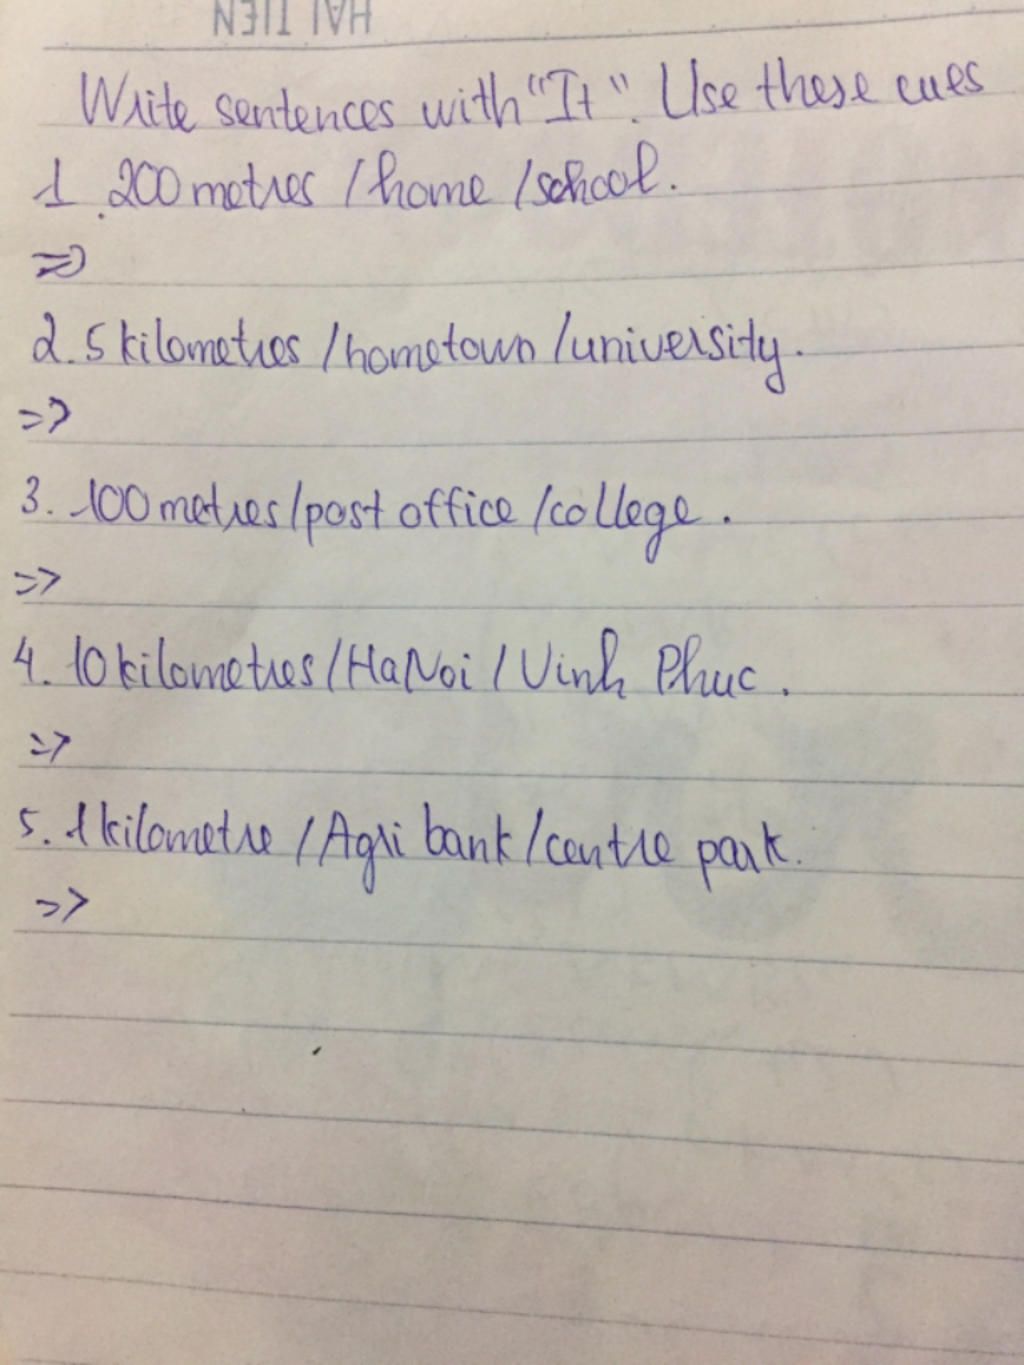 HẢI TIẾN
Write sentences with "It". Use these cues
1. 200 metres / home / school.
=>
2. 5 kilometres / hometown / university.
=>
3. 100 metres / post office / college.
=>
4. 10 kilometres / Ha Noi / Vinh Phuc.
=>
5. 1 kilometre / Agri bank / centre park.
=>